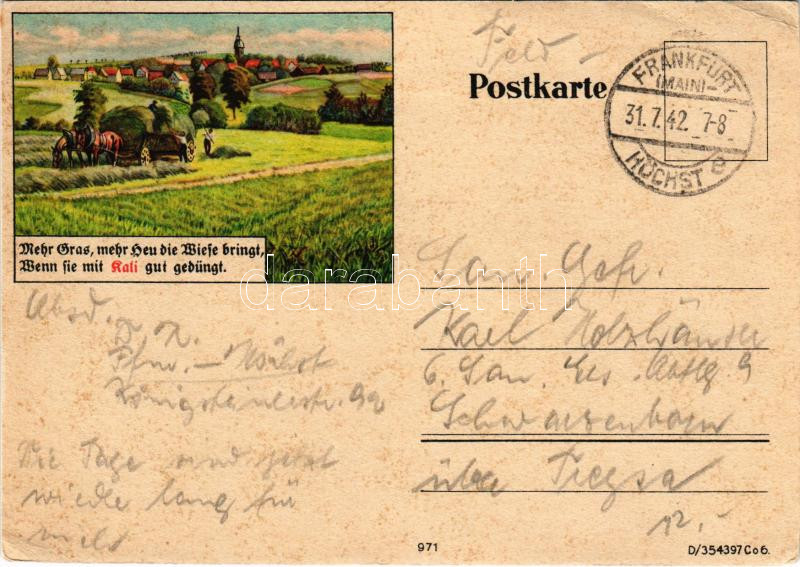 Feld-
Postkarte
FRANKFURT
(MAIN)
31.7.42. 7-8
HÖCHST
Mehr Gras, mehr Heu die Wiese bringt,
Wenn sie mit Kali gut gedüngt.
darabanth
San. Gefr.
Karl
6. San. Ers. Abtlg. 9
Schwarzenborn
über Treysa
12.-
Absd.
Ffm. - Höchst
Königsteinerstr.
Die Tage sind jetzt
wieder lang für
mich
971
D/354397 Co 6.